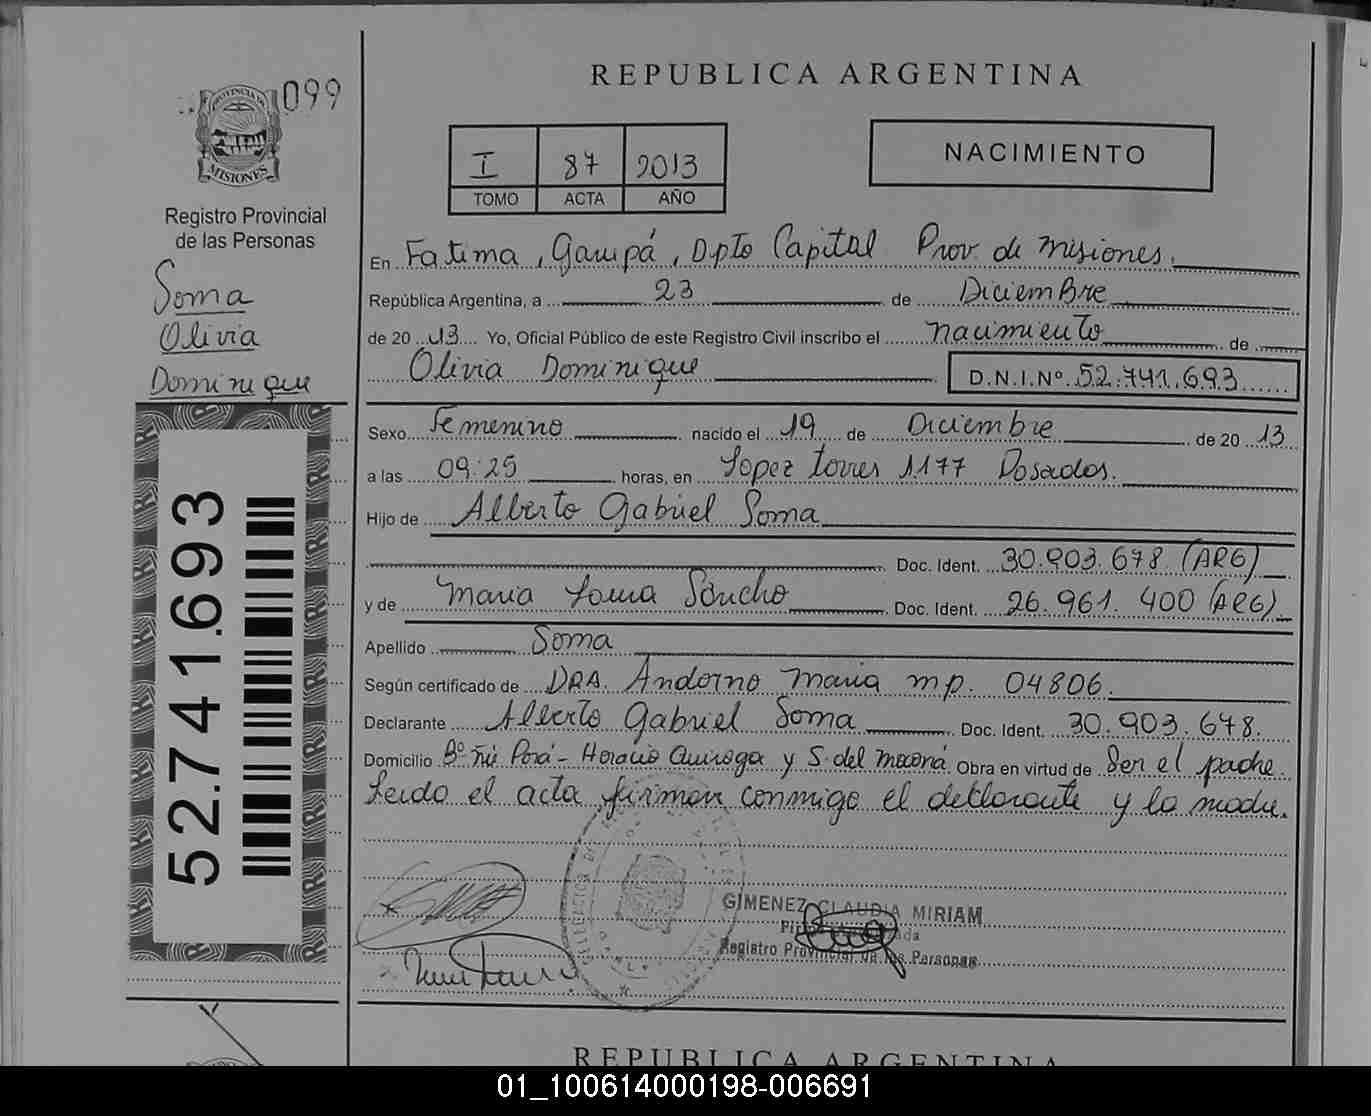 REPUBLICA ARGENTINA
099
PROVINCIA DE
MISIONES
Registro Provincial
de las Personas
Soma
Olivia
Dominique
52.741.693
I 87 2013
TOMO ACTA AÑO
NACIMIENTO
En Fatima, Garupá, Dpto Capital Prov. de Misiones.
República Argentina, a 23 de Diciembre
de 20 13 Yo, Oficial Público de este Registro Civil inscribo el nacimiento de
Olivia Dominique D.N.I.Nº 52.741.693
Sexo Femenino nacido el 19 de Diciembre de 20 13
a las 09:25 horas, en Lopez torres 1177 Posadas.
Hijo de Alberto Gabriel Soma
Doc. Ident. 30.903.678 (ARG)
y de Maria Sancho Doc. Ident. 26.961.400 (ARG).
Apellido Soma
Según certificado de DRA. Andorno Maria mp. 04806.
Declarante Alberto Gabriel Soma Doc. Ident. 30.903.678.
Domicilio Bº Ñu Porá - Horacio Quiroga y S. del Obra en virtud de Ser el padre.
Leido el acta firman conmigo el declarante y la madre.
GIMENEZ CLAUDIA MIRIAM
Registro Provincial de las Personas
REPUBLICA ARGENTINA
01_100614000198-006691